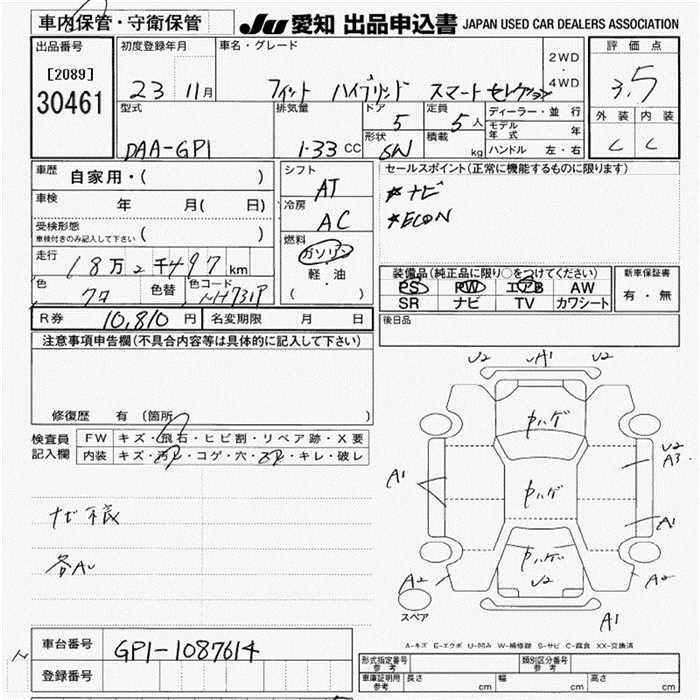 車内保管・守衛保管
JU 愛知 出品申込書 JAPAN USED CAR DEALERS ASSOCIATION
出品番号
[2089]
30461
初度登録年月
23 11月
車名・グレード
フィット ハイブリッド スマートセレクション
2WD
・
4WD
評価点
3.5
外装 内装
C C
型式
DAA-GP1
排気量
1.33 CC
ドア
5
形状
SW
定員
5人
積載
kg
ディーラー・並行
モデル年式 年
ハンドル 左・右
車歴
自家用・( )
車検
年 月( 日)
受検形態
車検付きのみ記入して下さい ( )
走行
18万2千497km
色
クロ
色替
色コード
NH731P
シフト
AT
冷房
AC
燃料
ガソリン
軽・油
( )
セールスポイント(正常に機能するものに限ります)
*ナビ
*ECON
装備品(純正品に限り○をつけてください)
PS PW エアB AW
SR ナビ TV カワシート
新車保証書
有・無
R券 10,810円
名変期限 月 日
後日品
注意事項申告欄(不具合内容等は具体的に記入して下さい)
修復歴 有 (箇所 )
検査員記入欄
FW キズ・飛石・ヒビ割・リペア跡・X要
内装 キズ・汚れ・コゲ・穴・スレ・キレ・破レ
ナビ様
各AU
U2 A1 U2
ハゲ
U2
A3
A1
ハゲ
A1
ハゲ
U2
A2
A2
スペア
A1
A-キズ E-エクボ U-凹み W-補修跡 S-サビ C-腐食 XX-交換済
車台番号
GP1-1087614
登録番号
形式指定番号
参考
類別区分番号
参考
車庫証明用
参考
長さ cm 幅 cm 高さ cm